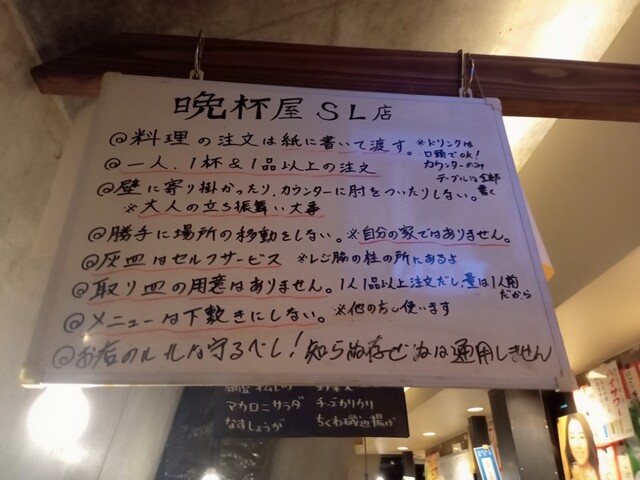 晩杯屋 SL店
@料理の注文は紙に書いて渡す。※ドリンクは
口頭でok!
カウンターのみ
テーブルは全部
書く
@一人、1杯&1品以上の注文
@壁に寄り掛かったり、カウンターに肘をついたりしない。
※大人の立ち振舞い大事
@勝手に場所の移動をしない。※自分の家ではありません。
@灰皿はセルフサービス ※レジ脇の柱の所にあるよ
@取り皿の用意はありません。1人1品以上注文だし、量は1人前
だから
@メニューは下敷きにしない。※他の方も使います
@お店のルールは守るべし!知らぬ存ぜぬは通用しません
マカロニサラダ
チーズカリカリ
なすしょうが
ちくわ磯辺揚げ